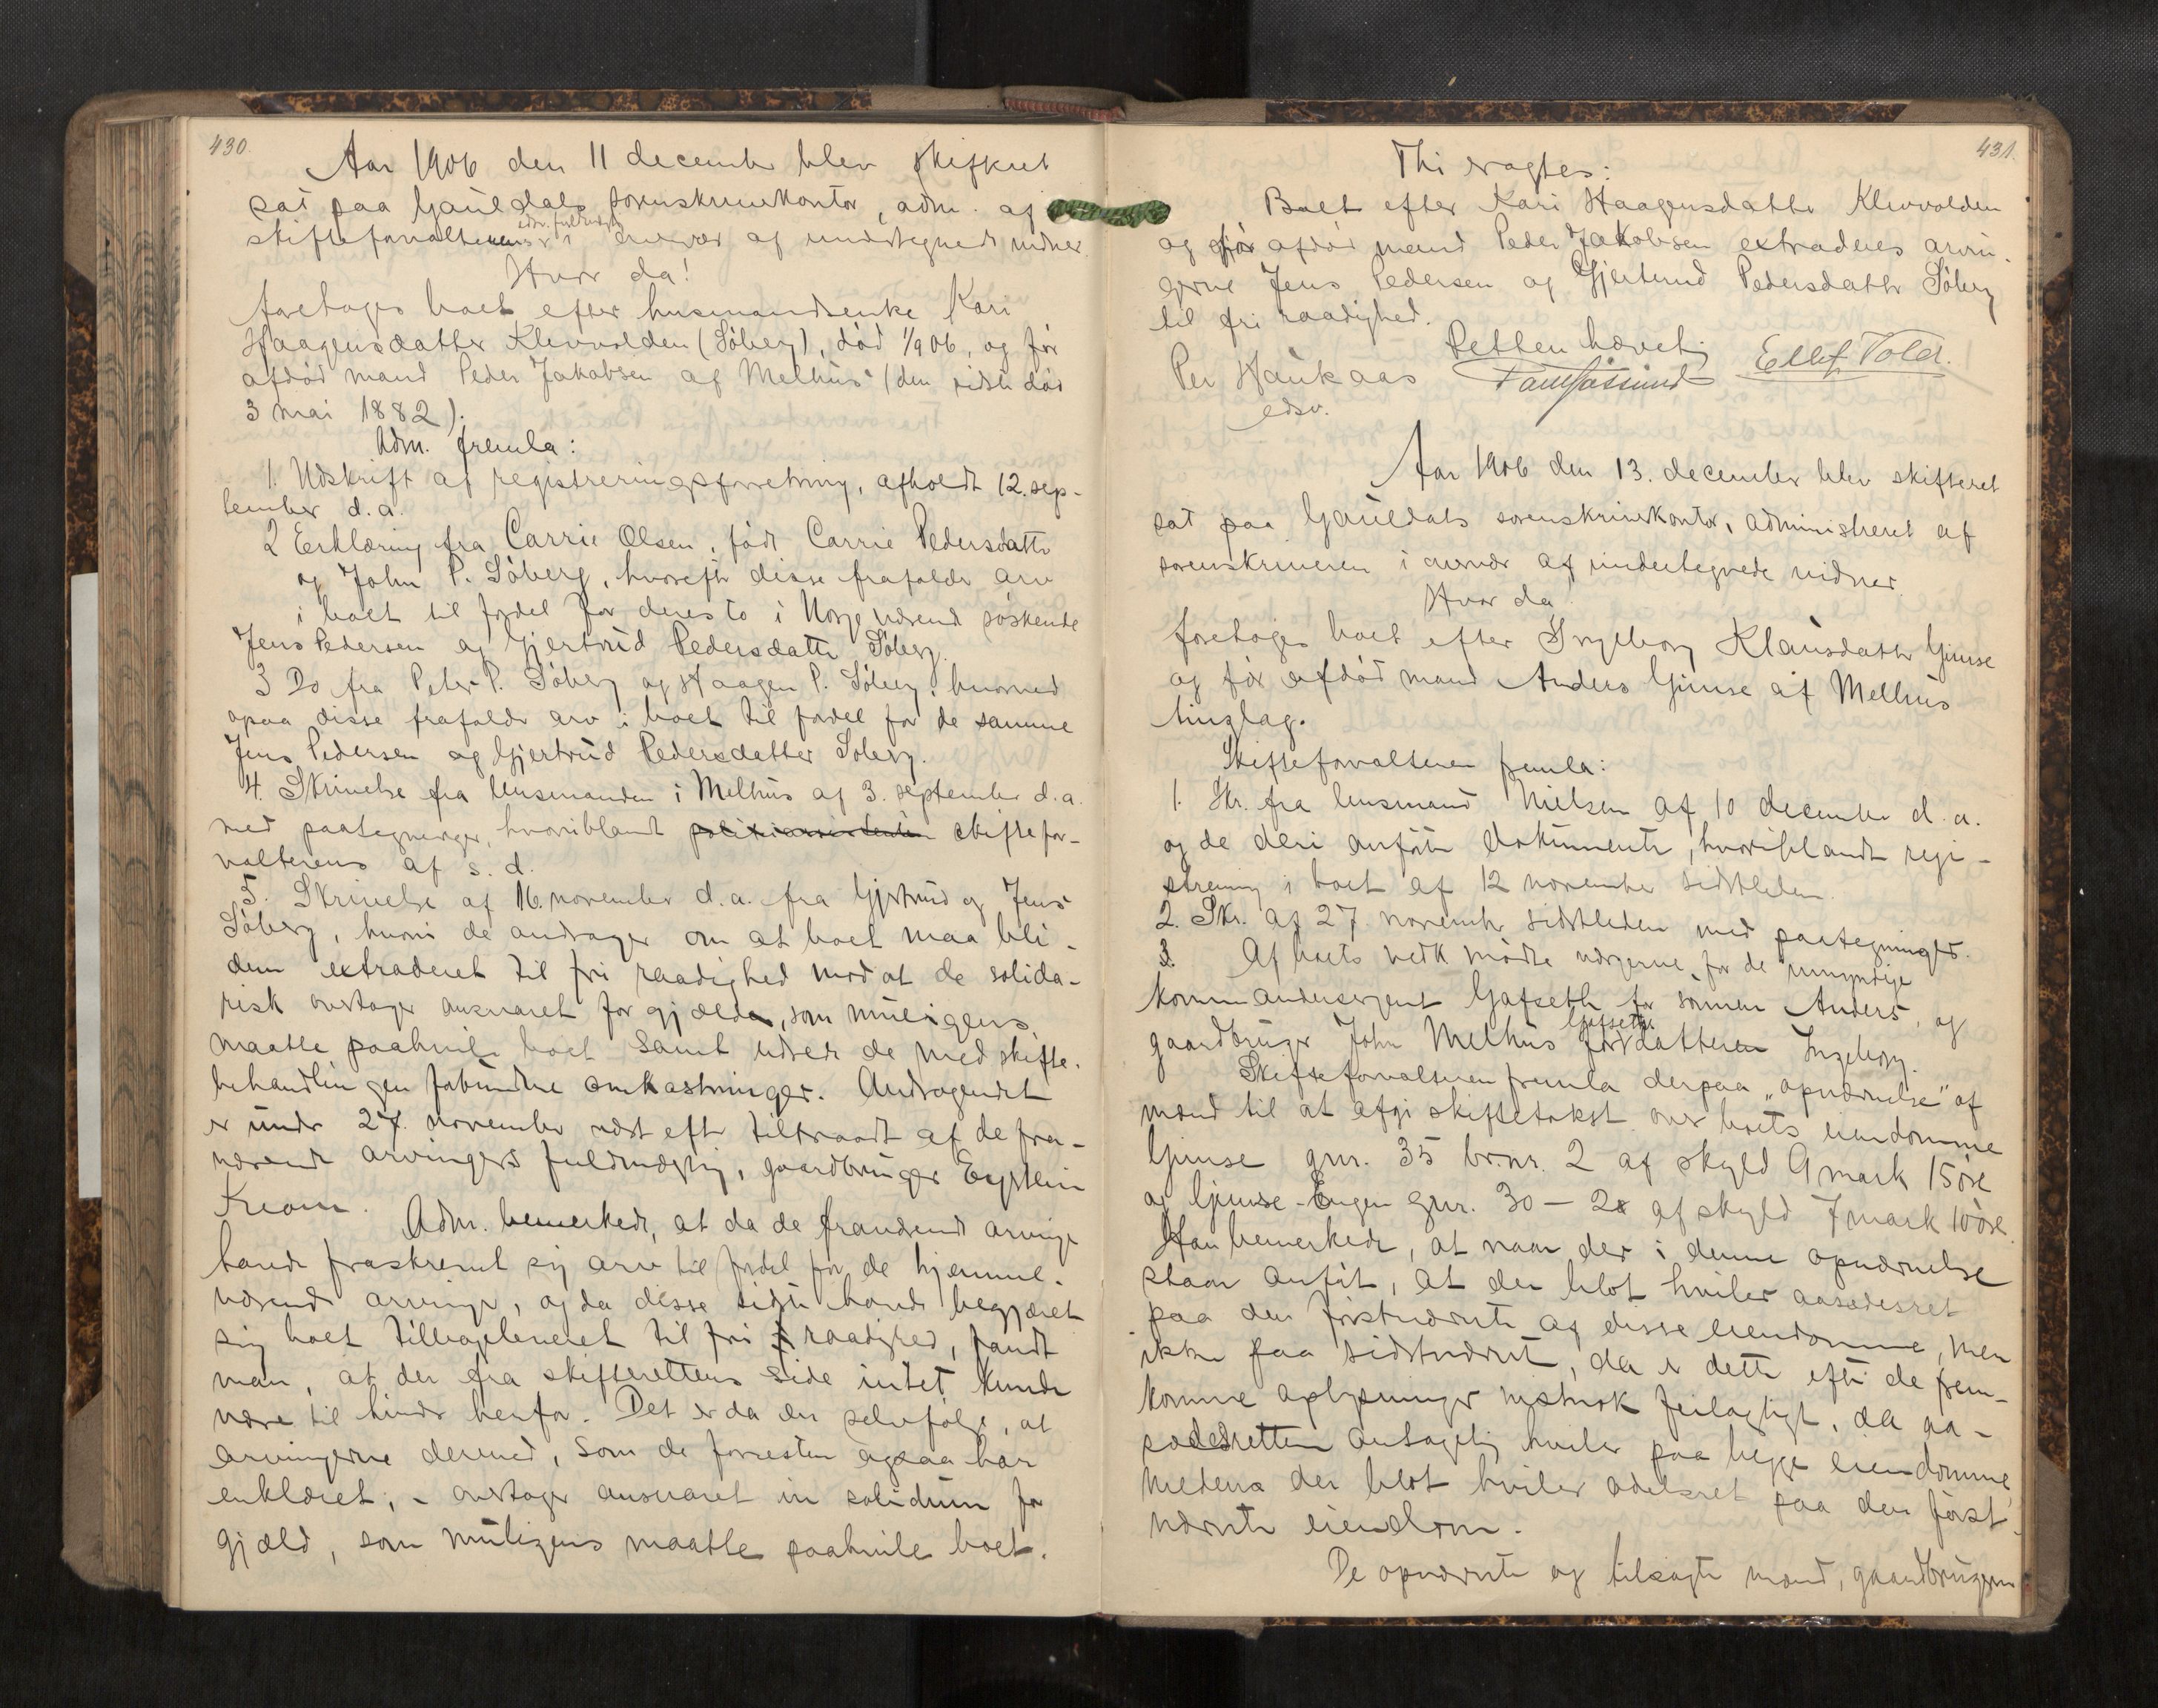 430.
Aar 1906 den 11 december blev skifteret
sat paa Gauldals sorenskriverkontor, adm. af
skifteforvalterens edsv. fuldmægtig i overvær af undertegnede vidner.
Hvor da!
foretoges boet efter husmandsenke Kari
Haagensdatter Klevvolden (Söberg), död 1/9 06, og för
afdöd mand Peder Jakobsen af Melhus (den sidste död
3 mai 1882).
Adm. fremla:
1. Udskrift af registreringsforretning, afholdt 12. sep-
tember d.a.
2 Erklæring fra Carrie Olsen, födt Carrie Pedersdatter
og John P. Söberg, hvorefter disse frafalder arv
i boet til fordel for deres to i Norge værende söskende
Jens Pedersen og Gjertrud Pedersdatter Söberg.
3 Do fra Peter P. Söberg og Haagen P. Söberg, hvorved
ogsaa disse frafalder arv i boet til fordel for de samme
Jens Pedersen og Gjertrud Pedersdatter Söberg.
4. Skrivelse fra lensmanden i Melhus af 3. september d.a.
med paategninger, hvoriblandt skiftefor-
valterens af s. d.
5. Skrivelse af 16. november d.a. fra Gjertrud og Jens
Söberg, hvori de andrager om at boet maa bli
dem extraderet til fri raadighed mod at de solida-
risk overtager ansvaret for gjælden, som muligens
maatte paahvile boet samt udreder de med skifte-
behandlingen forbundne omkostninger. Andragendet
er under 27. november næst efter tiltraadt af de fra-
værende arvingers fuldmægtig, gaardbruger Eystein
Kvam.
Adm. bemerkede, at da de fraværende arvinger
havde fraskrevet sig arv til fordel for de hjemme-
værende arvinger, og da disse sidste havde begjæret
sig boet tilbageleveret til fri raadighed, fandt
man, at der fra skifterettens side intet kunde
være til hinder herfor. Det er da en selvfölge, at
arvingerne derved, som de forresten ogsaa har
erklæret, - overtager ansvaret in solidum for
gjæld, som muligens maatte paahvile boet.
431.
Thi vragtes:
Boet efter Kari Haagensdatter Klevvolden
og för afdöd mand Peder Jakobsen extraderes arvin-
gerne Jens Pedersen og Gjertrud Pedersdatter Söberg
til fri raadighed.
Retten hævet.
Per Haukaas
edsv.
Ellef Vold.
Aar 1906 den 13. december blev skifteret
sat paa Gauldals sorenskriverkontor, administreret af
sorenskriveren i overvær af undertegnede vidner.
Hvor da
foretoges boet efter Ingeborg Klausdatter Gimse
og för afdöd mand Anders Gimse af Melhus
tinglag.
Skifteforvalteren fremla:
1. Skr. fra lensmand Nielsen af 10 december d.a.
og de deri anförte dokumenter, hvoriblandt regi-
strering i boet af 12 november sidstleden.
2. Skr. af 27. november sidstleden med paategninger.
3. Af boets vedk mödte værgerne for de umyndige
kommandersergent Gafseth for sönnen Anders, og
gaardbruger John Melhus Gafseth for datteren Ingeborg.
Skifteforvalteren fremla derpaa „opnævnelse" af
mænd til at afgi skiftetakst over boets eiendomme
Gimse gnr. 35 br.nr. 2 af skyld 9 mark 15 öre
og Gimse-Engen gnr. 30 - 28 af skyld 7 mark 10 öre.
Han bemerkede, at naar der i denne opnævnelse
staar anfört, at der blot hviler aasædesret
paa den förstnævnte af disse eiendomme, men
ikke paa sidstnævnte, da er dette efter de frem-
komne oplysninger feilagtigt, da aa-
sædesretten antagelig hviler paa begge eiendomme,
medens der blot hviler odelsret paa den först-
nævnte eiendom.
De opnævnte og tilsagte mænd, gaardbrugerne